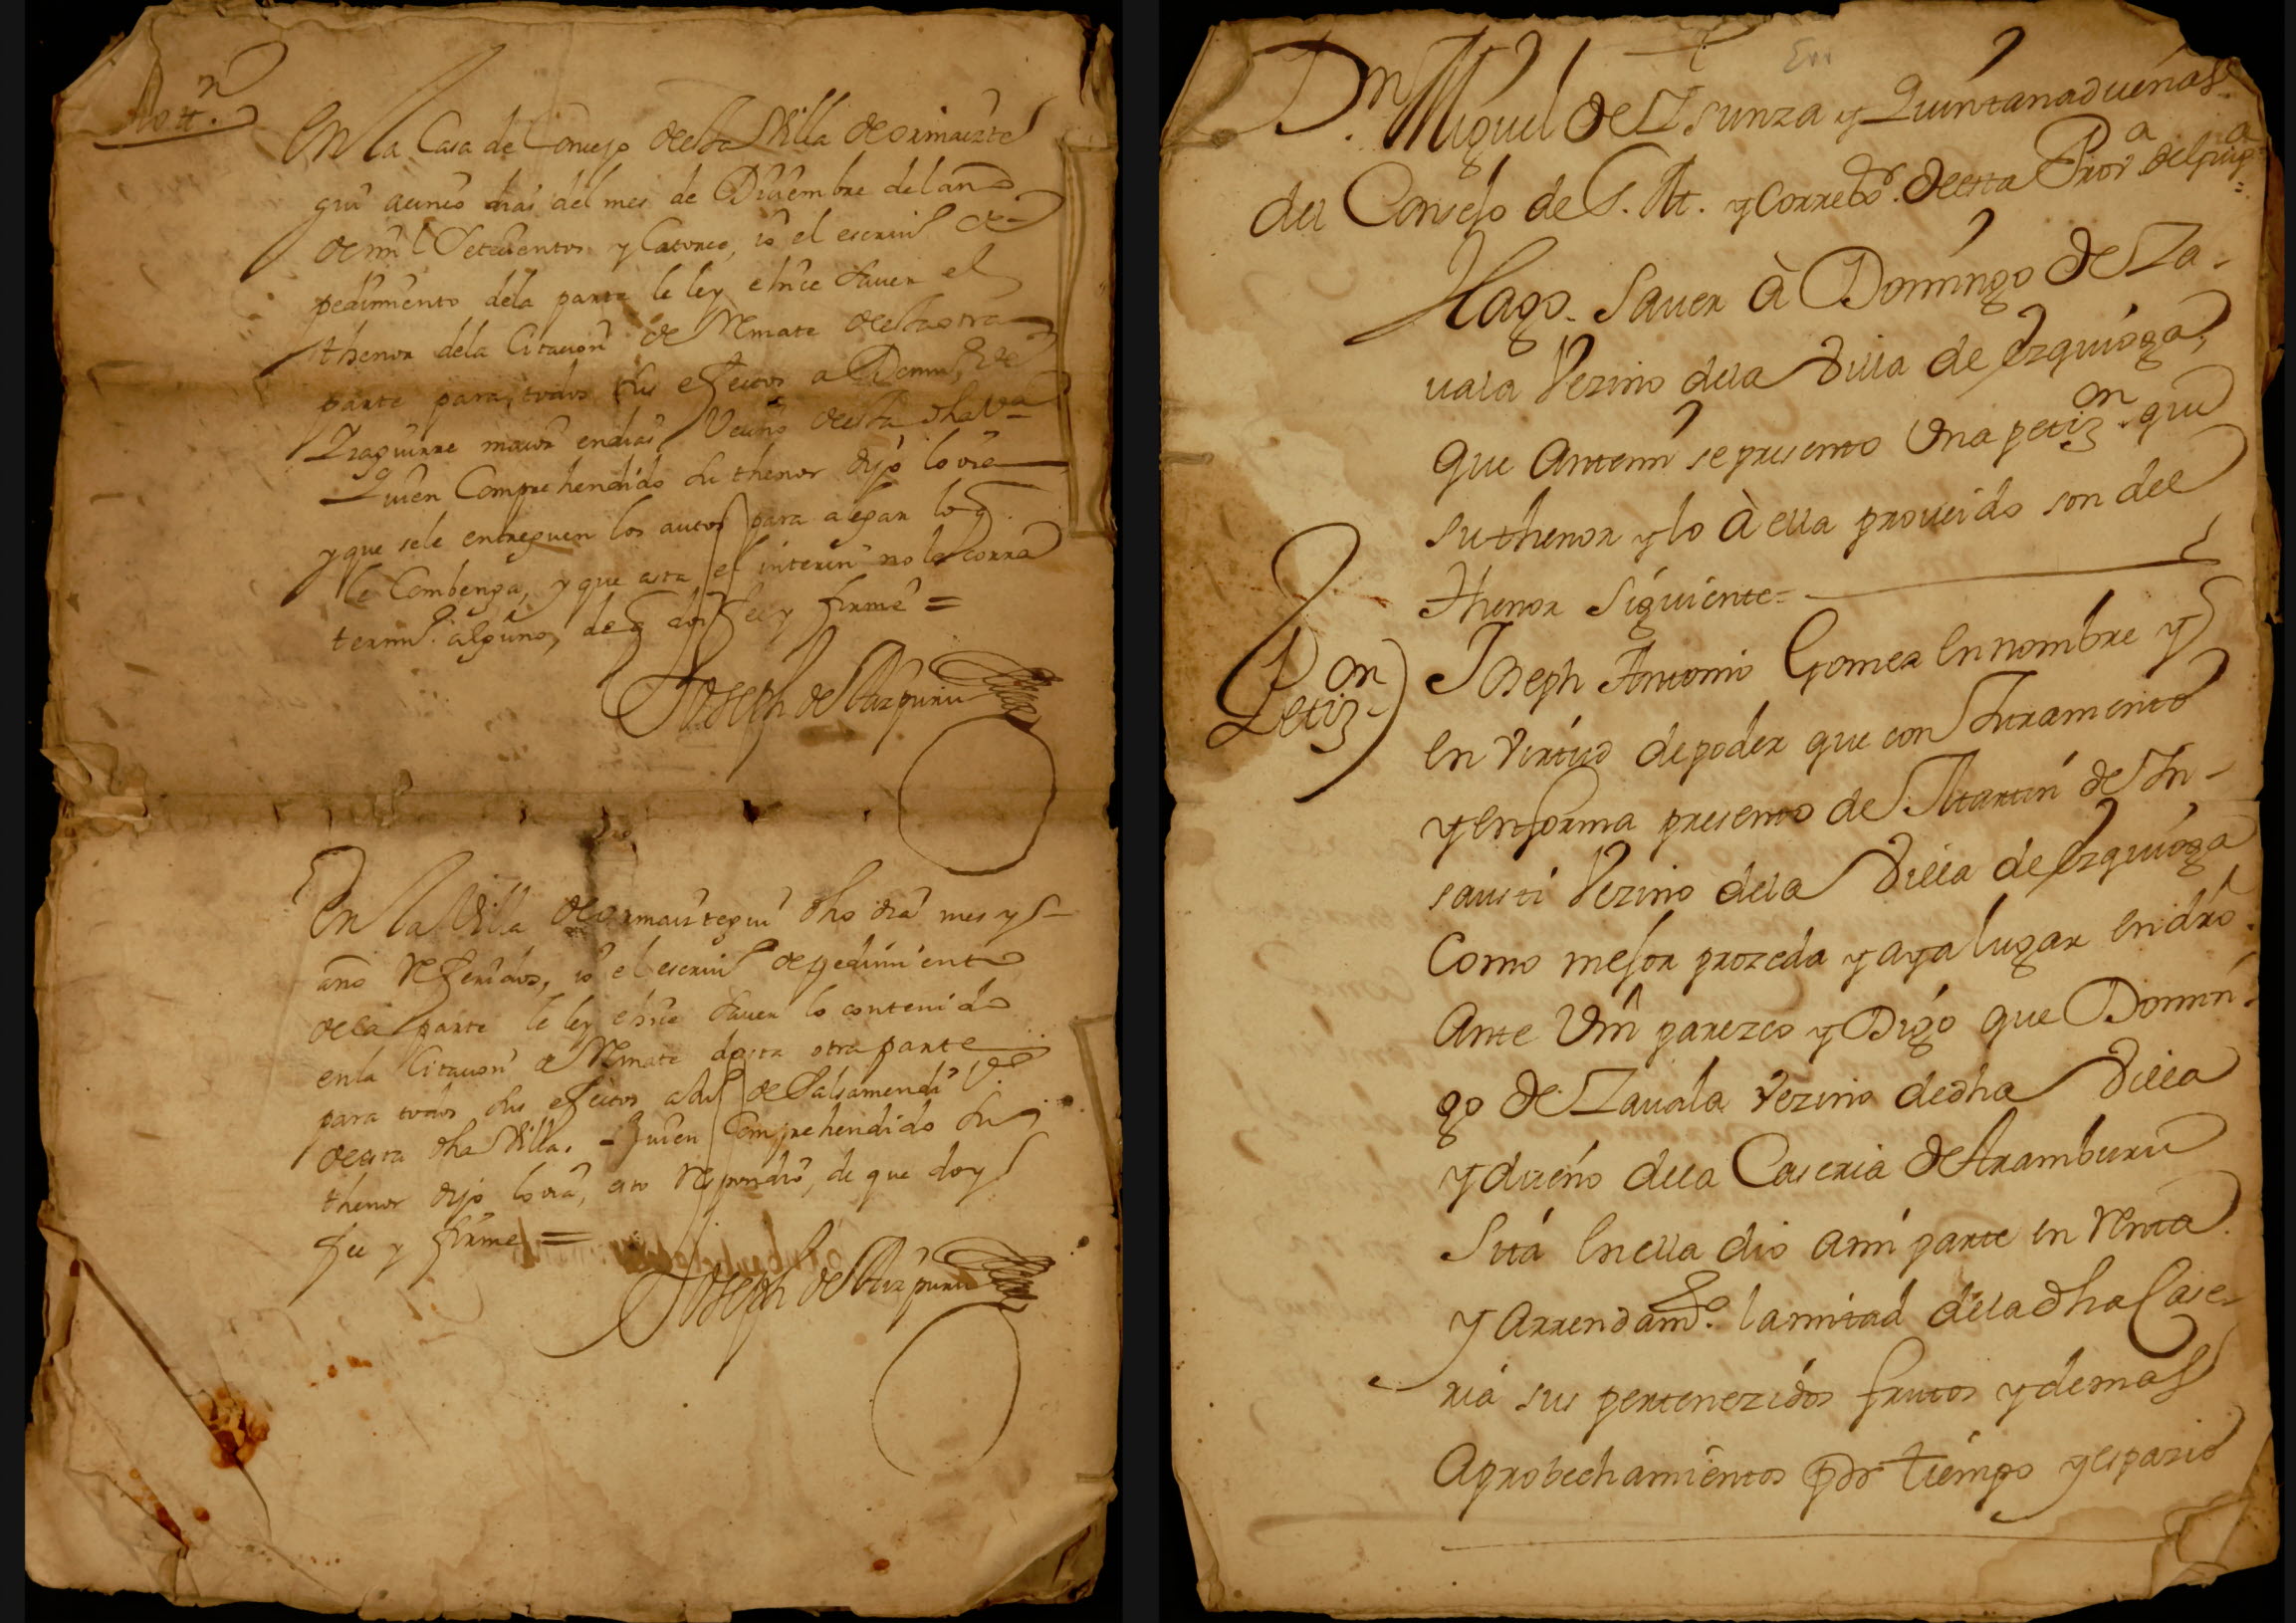 Nott.n
En la Casa de Concejo desta Villa de ormaizte
gui a cinco dias del mes de Diziembre del año
de mil Setecientos y Catorce, io el escriuno de
pedimiento dela parte le ley e hice sauer el
thenor dela Citacion de Remate desta otra
parte para todos sus efectos a Domingo de
Yzaguirre maior en dias Vecino desta dha Va
Quien Comprehendido su thenor dijo lo oia
y que sele entreguen los autos para alegar lo q
le Combenga, y que asta el interin no le corra
termino alguno, de q doi fee y firme =
Joseph de Aizpuru
En la Villa de ormaiztegui dho dia mes y
año Referidos, io el escriuno de pedimiento
dela parte le ley e hice sauer lo contenido
enla Citacion de Remate desta otra parte
para todos sus efectos a de Salsamendi Vo
desta dha Villa. Quien Comprehendido su
thenor dijo lo oia, esto Respondio, de que doy
fee y firme =
Joseph de Aizpuru
Dn. Miguel de Ysunza y Quintanadueñas
del Consejo de S. M. y Correxor. desta Prova. de Guipa =
Hago Sauer à Domingo de Za-
uala Vezino dela Villa de Ezquioga,
que Antemi se presento Una petizon. que
su thenor y lo à ella proueido son del
thenor Siguiente=
Petizon
Joseph Antonio Gomez En nombre y
En Virtud de poder que con Juramento
y En forma presento de Martin de In-
sausti Vezino dela Villa de Ezquioga
Como mejor prozeda y aya lugar En dro.
Ante Vm parezco y Digo que Domin-
go de Zauala Vezino de dha Villa
y dueño dela Caseria de Aramburu
Sita En ella dio ami parte en Renta
y Arrendamto. la mitad dela dha Case-
ria sus pertenezidos frutos y demas
Aprobechamientos por tiempo y espazio